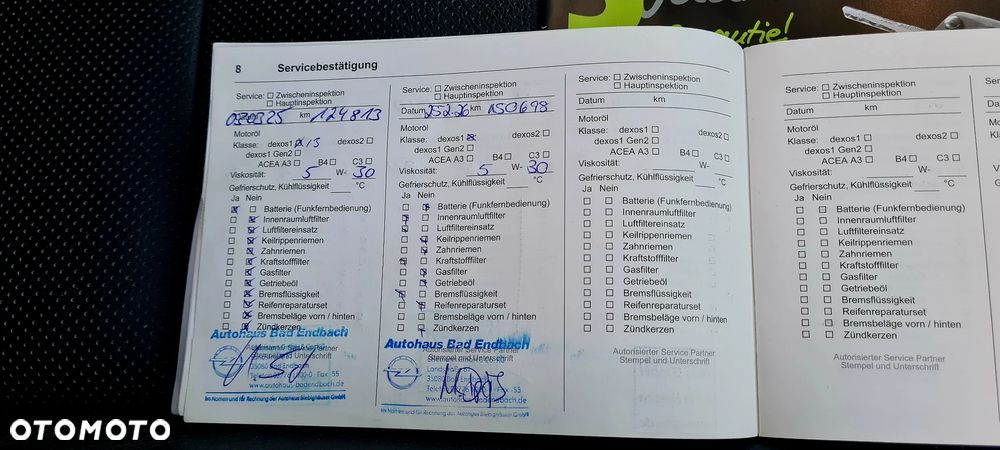 8 Servicebestätigung
Service: Zwischeninspektion
Hauptinspektion
km 124813
Motoröl
Klasse: dexos1 dexos2
dexos1 Gen2
ACEA A3 B4 C3
Viskosität: 5 W- 30
Gefrierschutz, Kühlflüssigkeit °C
Ja Nein
Batterie (Funkfernbedienung)
Innenraumluftfilter
Luftfiltereinsatz
Keilrippenriemen
Zahnriemen
Kraftstofffilter
Gasfilter
Getriebeöl
Bremsflüssigkeit
Reifenreparaturset
Bremsbeläge vorn / hinten
Zündkerzen
Autohaus Bad Endbach
35080 Bad Endbach
www.autohaus-badendbach.de
Im Namen und für Rechnung der Autohaus Siebighäuser GmbH
Service: Zwischeninspektion
Hauptinspektion
Datum 25.2.26 km 150698
Motoröl
Klasse: dexos1 dexos2
dexos1 Gen2
ACEA A3 B4 C3
Viskosität: 5 W- 30
Gefrierschutz, Kühlflüssigkeit °C
Ja Nein
Batterie (Funkfernbedienung)
Innenraumluftfilter
Luftfiltereinsatz
Keilrippenriemen
Zahnriemen
Kraftstofffilter
Gasfilter
Getriebeöl
Bremsflüssigkeit
Reifenreparaturset
Bremsbeläge vorn / hinten
Zündkerzen
Autohaus Bad Endbach
Autorisierter Service Partner
Stempel und Unterschrift
35080 Bad Endbach
www.autohaus-badendbach.de
Im Namen und für Rechnung der Autohaus Siebighäuser GmbH
Service: Zwischeninspektion
Hauptinspektion
Datum km
Motoröl
Klasse: dexos1 dexos2
dexos1 Gen2
ACEA A3 B4 C3
Viskosität: W-
Gefrierschutz, Kühlflüssigkeit °C
Ja Nein
Batterie (Funkfernbedienung)
Innenraumluftfilter
Luftfiltereinsatz
Keilrippenriemen
Zahnriemen
Kraftstofffilter
Gasfilter
Getriebeöl
Bremsflüssigkeit
Reifenreparaturset
Bremsbeläge vorn / hinten
Zündkerzen
Autorisierter Service Partner
Stempel und Unterschrift
Service: Zwischeninspektion
Hauptinspektion
Datum km
Motoröl
Klasse: dexos1 dexos2
dexos1 Gen2
ACEA A3 B4 C3
Viskosität: W-
Gefrierschutz, Kühlflüssigkeit °C
Ja Nein
Batterie (Funkfernbedienung)
Innenraumluftfilter
Luftfiltereinsatz
Keilrippenriemen
Zahnriemen
Kraftstofffilter
Gasfilter
Getriebeöl
Bremsflüssigkeit
Reifenreparaturset
Bremsbeläge vorn / hinten
Zündkerzen
Autorisierter Service Partner
Stempel und Unterschrift
OTOMOTO
OTOMOTO